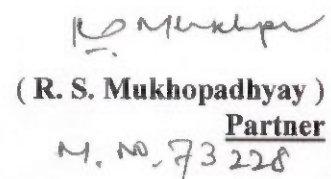 ( R. S. Mukhopadhyay )
Partner
M. NO. 73228